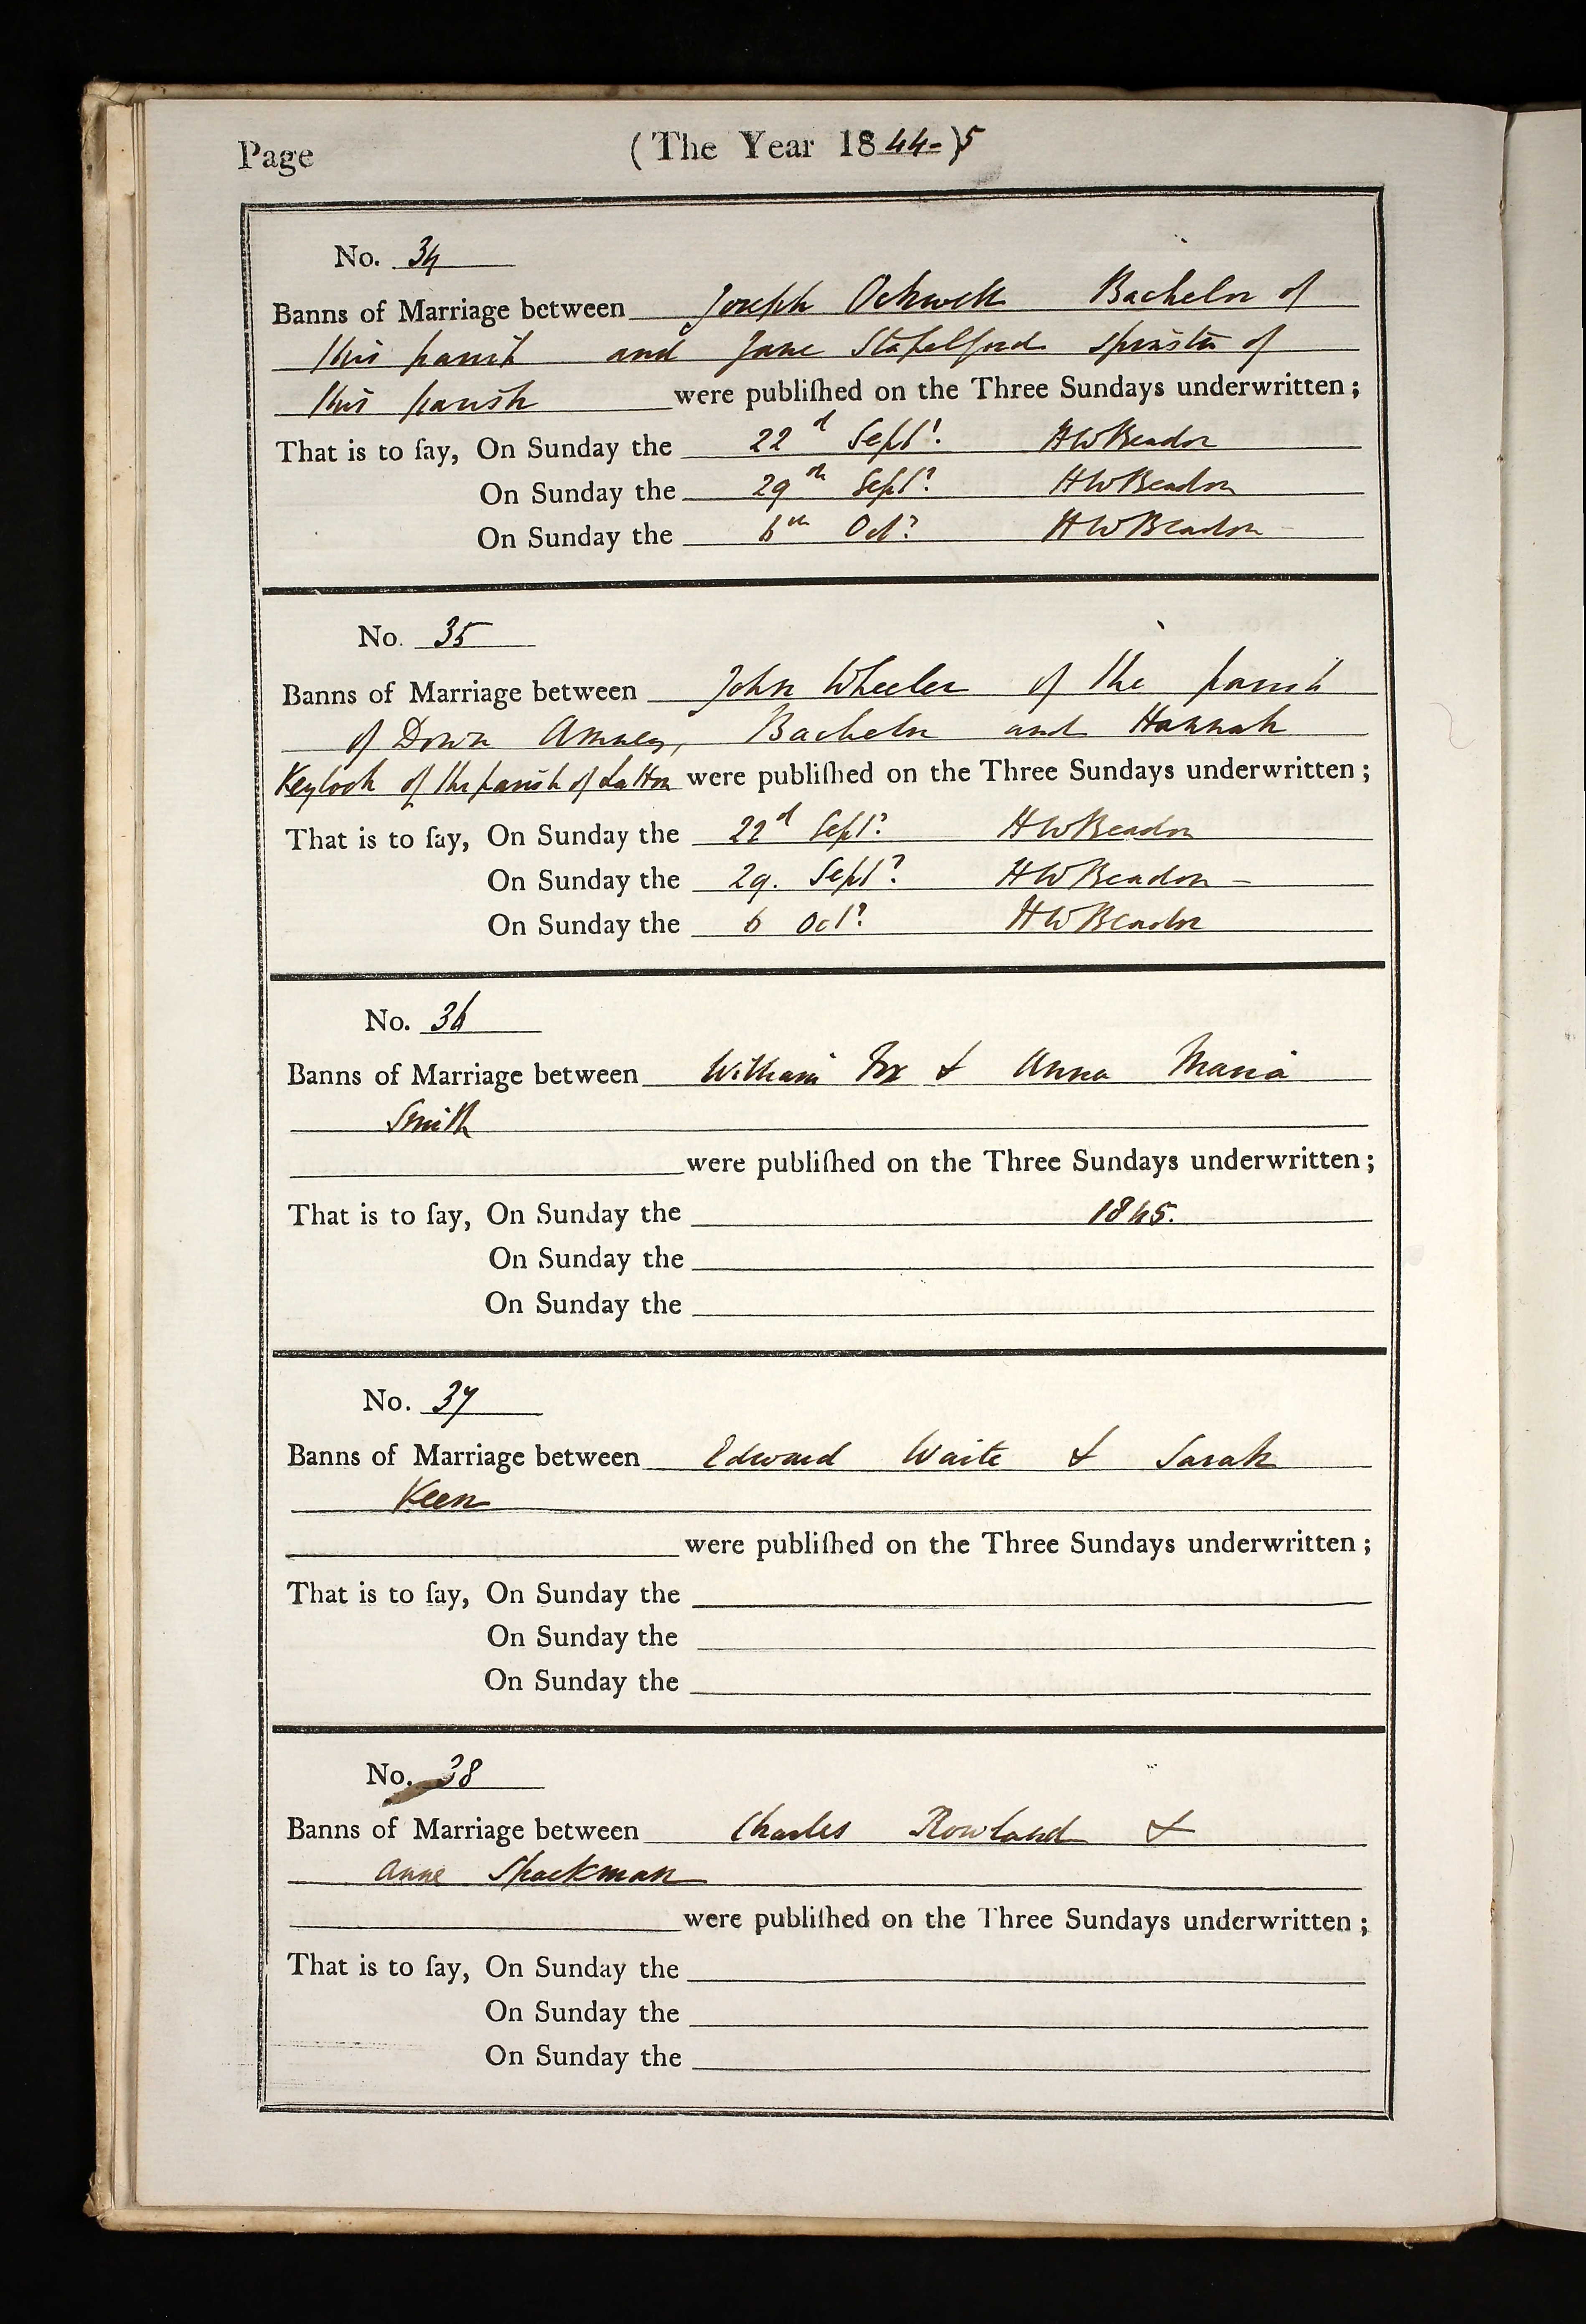 Page (The Year 1844-)5
No. 34
Banns of Marriage between Joseph Ockwell Bachelor of
this parish and Jane Stapelford Spinster of
this parish were publiſhed on the Three Sundays underwritten;
That is to ſay, On Sunday the 22d Sept. HWBeadon
On Sunday the 29th Sept. HWBeadon
On Sunday the 6th Oct. HWBeadon
No. 35
Banns of Marriage between John Wheeler of the parish
of Down Amney, Bachelor and Hannah
Keylock of the parish of Latton were publiſhed on the Three Sundays underwritten;
That is to ſay, On Sunday the 22d Sept. HWBeadon
On Sunday the 29. Sept. HWBeadon
On Sunday the 6 Oct. HWBeadon
No. 36
Banns of Marriage between William Fox & Anna Maria
Smith
were publiſhed on the Three Sundays underwritten;
That is to ſay, On Sunday the 1845.
On Sunday the
On Sunday the
No. 37
Banns of Marriage between Edward Waite & Sarah
Keen
were publiſhed on the Three Sundays underwritten;
That is to ſay, On Sunday the
On Sunday the
On Sunday the
No. 38
Banns of Marriage between Charles Rowland &
Anne Spackman
were publiſhed on the Three Sundays underwritten;
That is to ſay, On Sunday the
On Sunday the
On Sunday the